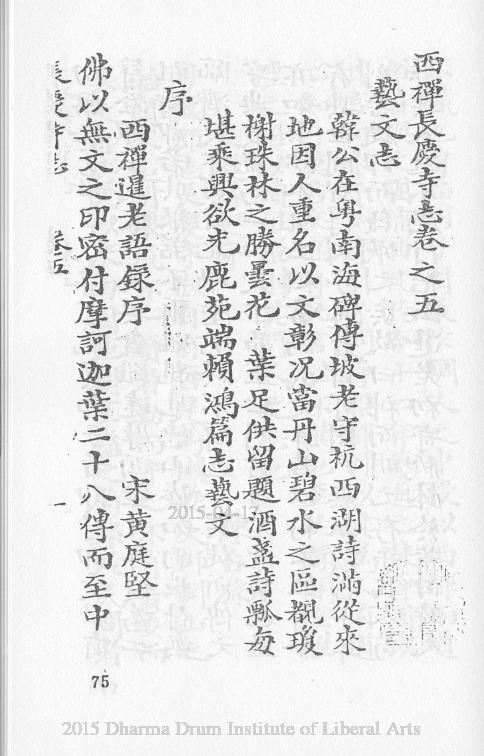 西禪長慶寺志卷之五
藝文志
韓公在粤南海碑傳坡老守杭西湖詩滿從來
地因人重名以文彰况當丹山碧水之區覩瓊
榭珠林之勝曇花 葉足供留題酒盞詩瓢每
堪乘興欲光鹿苑端賴鴻篇志藝文
序
西禪暹老語錄序 宋黄庭堅
佛以無文之印密付摩訶迦葉二十八傳而至中
長慶寺志 卷五 一
75
2015-04-17
2015 Dharma Drum Institute of Liberal Arts